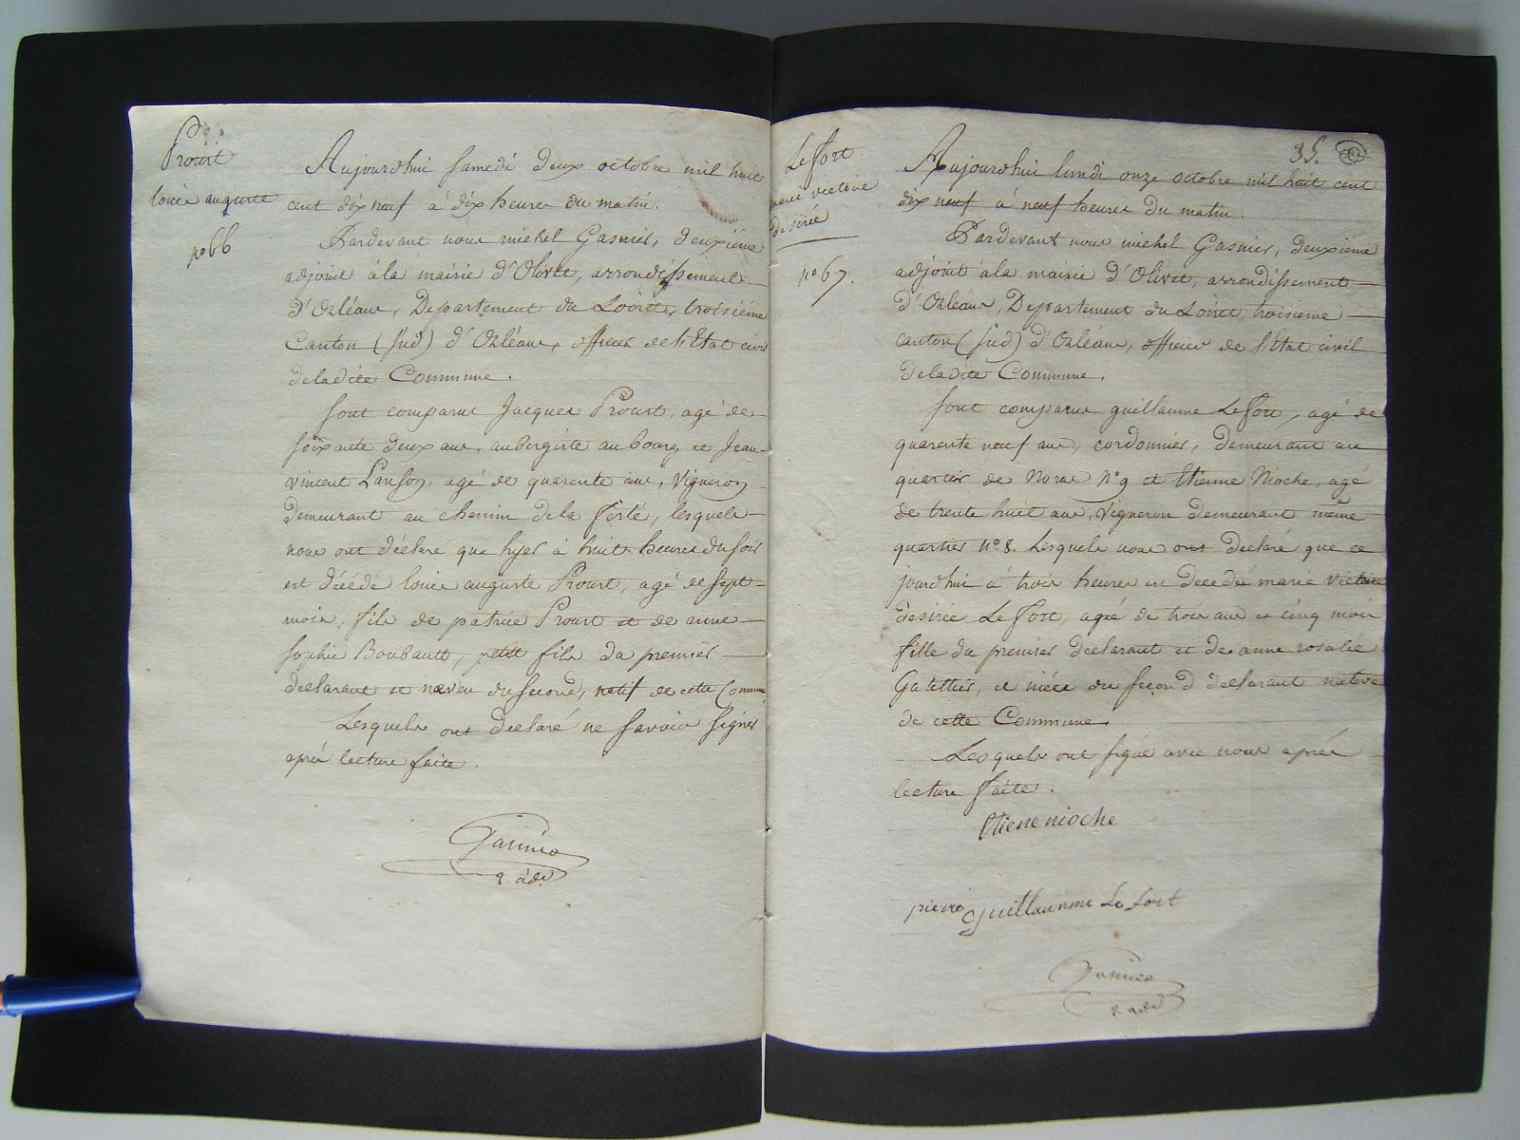 Proust
louis auguste
nº 66
Aujourdhui samedi deux octobre mil huit
cent dix neuf à dix heures du matin.
Pardevant nous michel Gasnier, deuxième
adjoint à la mairie d'Olivet, arrondissement
d'Orléans, Departement du Loiret, troisième
Canton (sud) d'Orléans, officier de l'Etat civil
de ladite Commune.
Sont comparus Jacques Proust, agé de
soixante deux ans, aubergiste au bourg et Jean
vincent Panson, agé de quarente ans, Vigneron
demeurant au chemin de la ferté, lesquels
nous ont déclaré que hyer à huit heures du soir
est décédé louis auguste Proust, agé de sept
mois, fils de patrice Proust et de anne
sophie Boubault, petit fils du premier
declarant et neveu du second, natif de cette Commune
Lesquels ont declaré ne savoir signer
après lecture faite.
Gasnier
2 adj
35.
Le fort
marie victoire
desirée
nº 67.
Aujourdhui lundi onze octobre mil huit cent
dix neuf à neuf heures du matin.
Pardevant nous michel Gasnier, deuxième
adjoint à la mairie d'Olivet, arrondissement
d'Orléans, Departement du Loiret, troisieme
canton (sud) d'Orléans, officier de l'Etat civil
de ladite Commune.
Sont comparus guillaume Le fort, agé de
quarente neuf ans, cordonnier, demeurant au
quartier de Norac Nº 9 et Etienne Nioche, agé
de trente huit ans, Vigneron demeurant même
quartier nº 8. Lesquels nous ont declaré que ce
jourdhui à trois heures est decedé marie victoire
desirée Le fort, agée de trois ans et cinq mois
fille du premier declarant et de anne rosalie
Galettier, et niéce du second declarant native
de cette Commune.
Lesquels ont signé avec nous après
lecture faite.
Etiene nioche
pierre guillaumme Le fort
Gasnier
2 adj